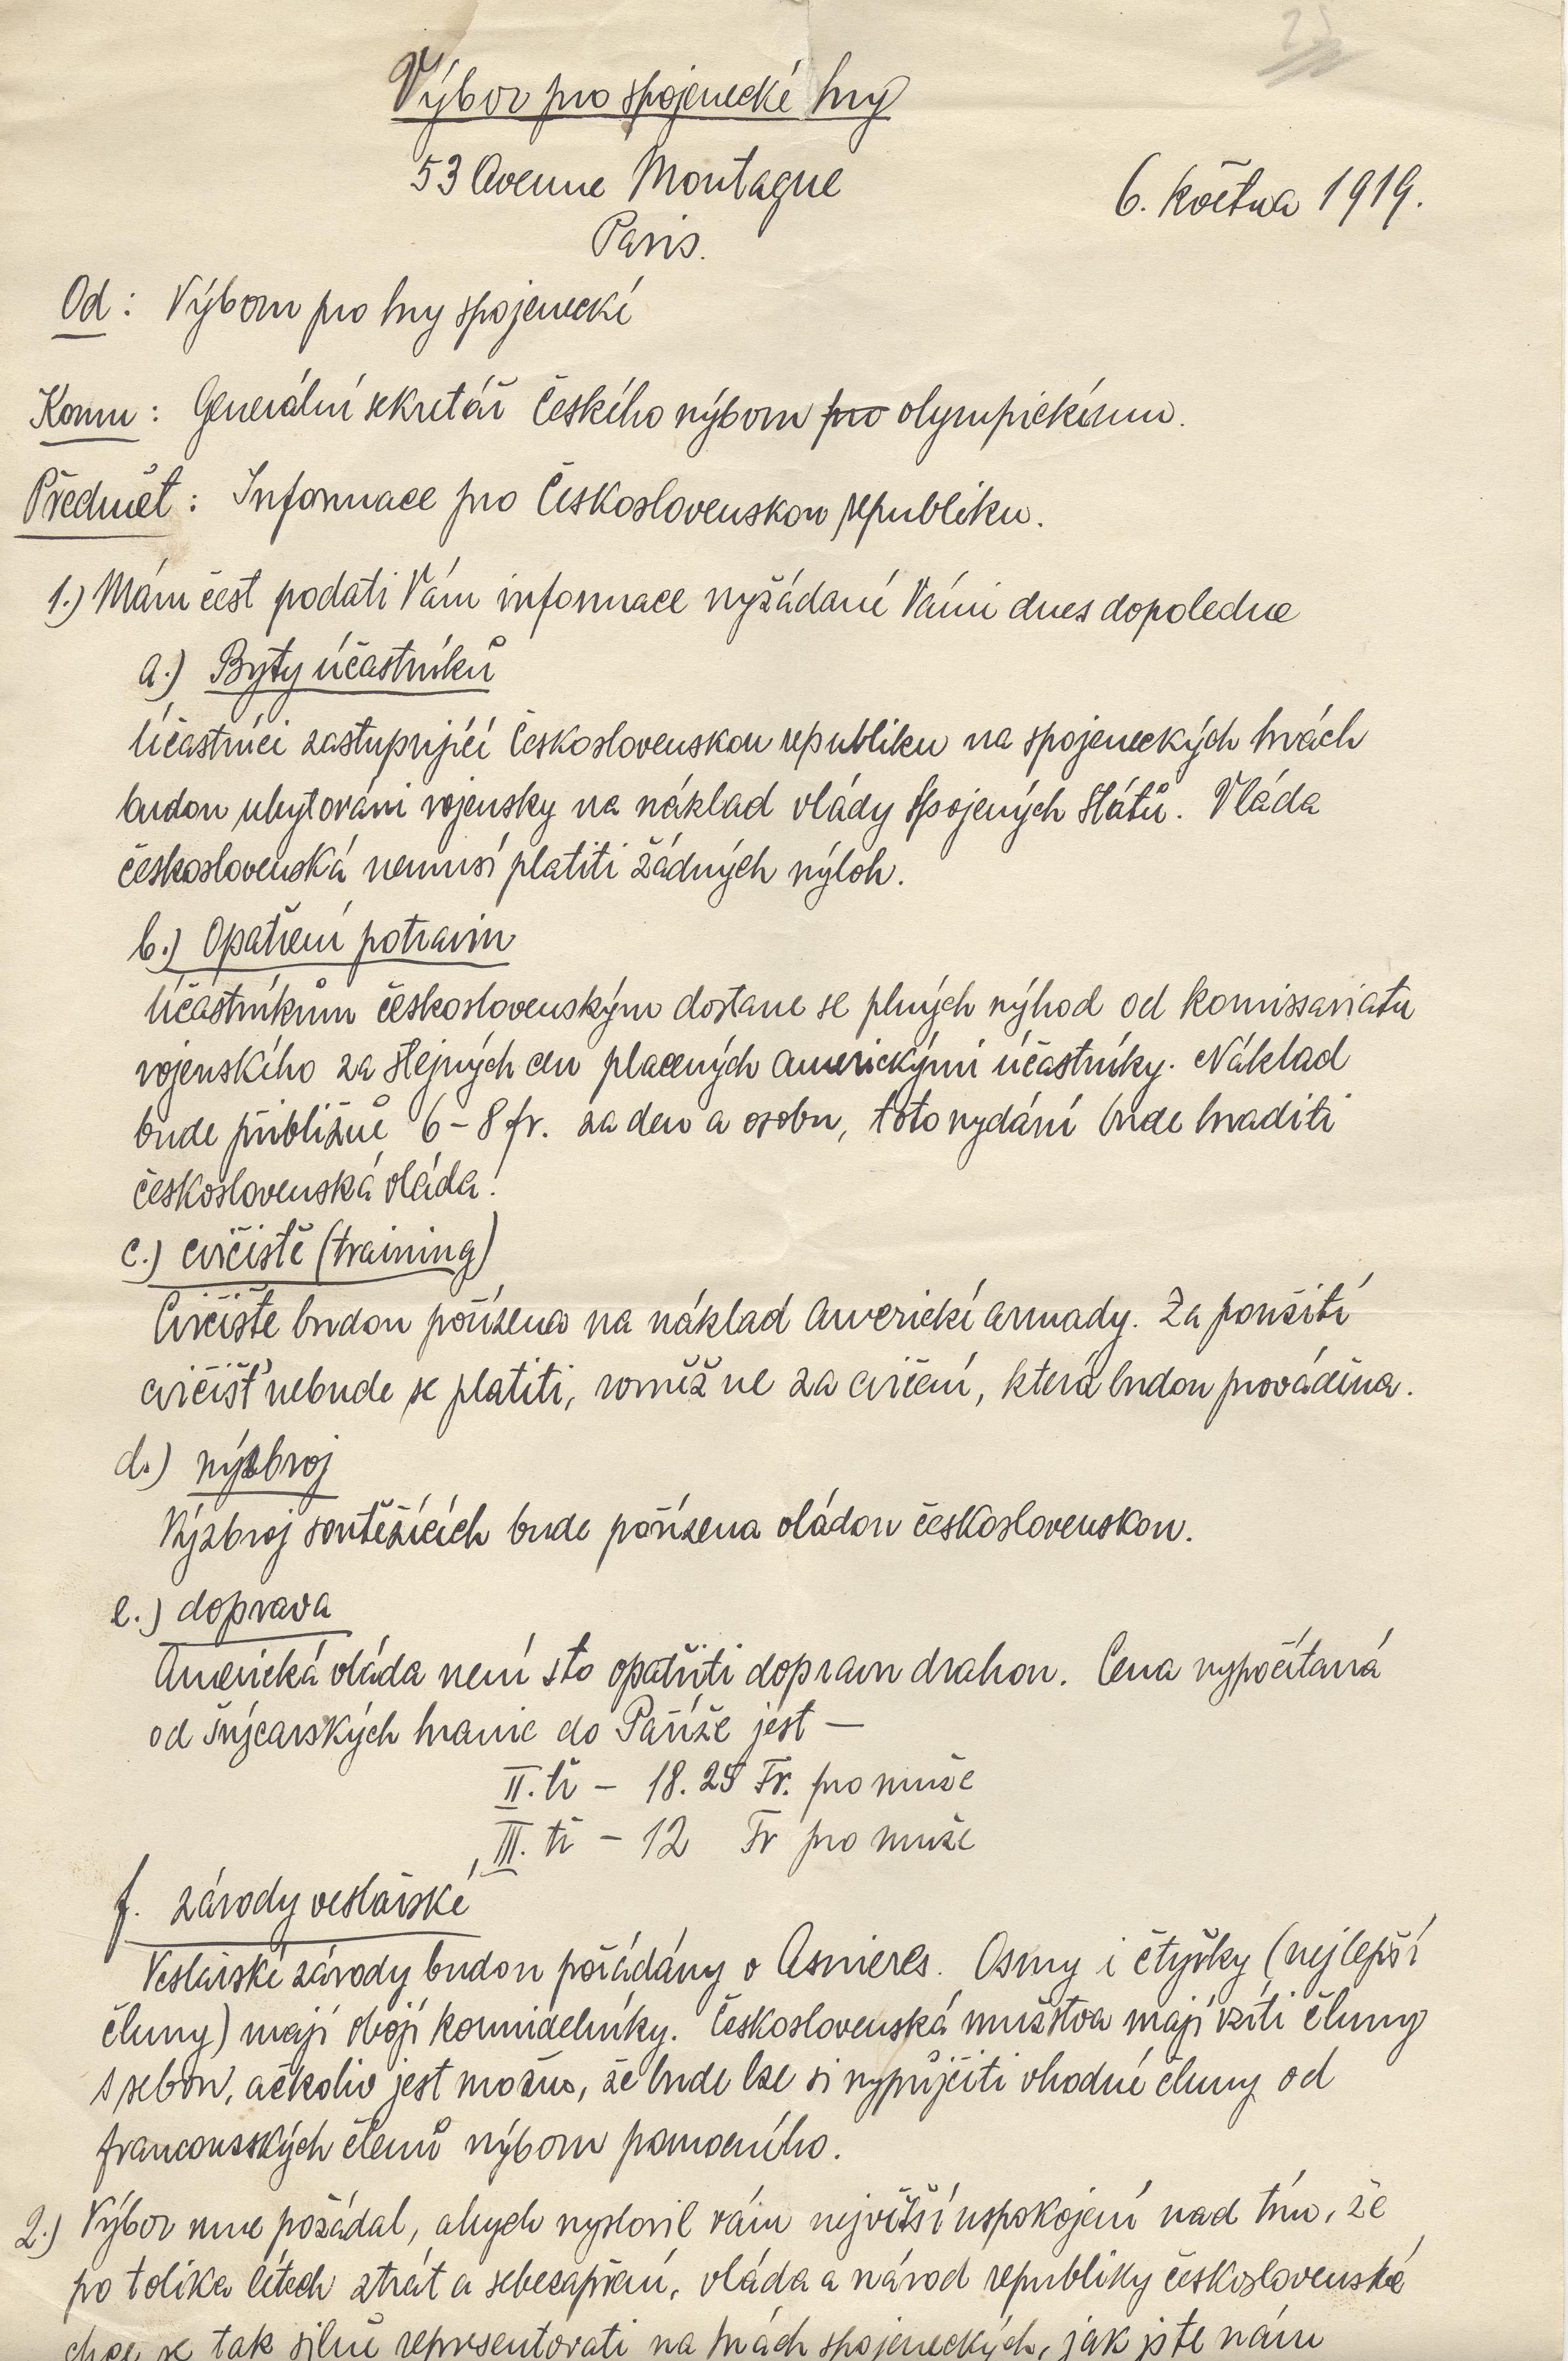 Výbor pro spojenecké hry
53 Avenue Montague
6. května 1919.
Paris.
Od: Výboru pro hry spojenecké
Komu: Generální sekretář Českého výboru pro olympickému.
Předmět: Informace pro Československou republiku.
1.) Mám čest podati Vám informace vyžádané Vámi dnes dopoledne
a.) Byty účastníků
Účastníci zastupující Československou republiku na spojeneckých hrách
budou ubytováni vojensky na náklad vlády Spojených Států. Vláda
československá nemusí platiti žádných výloh.
b.) Opatření potravin
Účastníkům československým dostane se plných výhod od komissariatu
vojenského za stejných cen placených americkými účastníky. Náklad
bude přibližně 6-8 fr. za den a osobu, toto vydání bude hraditi
československá vláda.
c.) cvičiště (training)
Cvičiště budou pořízena na náklad Americké armady. Za použití
cvičišť nebude se platiti, rovněž ne za cvičení, která budou prováděna.
d.) výzbroj
Výzbroj soutěžících bude pořízena vládou československou.
e.) doprava
Americká vláda není sto opatřiti dopravu drahou. Cena vypočítaná
od švýcarských hranic do Paříže jest —
II. tř – 18.25 Fr. pro muže
III. tř – 12 Fr pro muže
f. závody veslařské
Veslařské závody budou pořádány v Asnieres. Osmy i čtyřky (nejlepší
čluny) mají obojí kormidelníky. Československá mužstva mají vzíti čluny
s sebou, ačkoliv jest možno, že bude lze si vypůjčiti vhodné čluny od
francouzských členů výboru pomocního.
2.) Výbor mne požádal, abych vyslovil vám největší uspokojení nad tím, že
po tolika létech ztrát a sebezapření, vláda a národ republiky československé
chce se tak silně representovati na hrách spojeneckých, jak jste nám